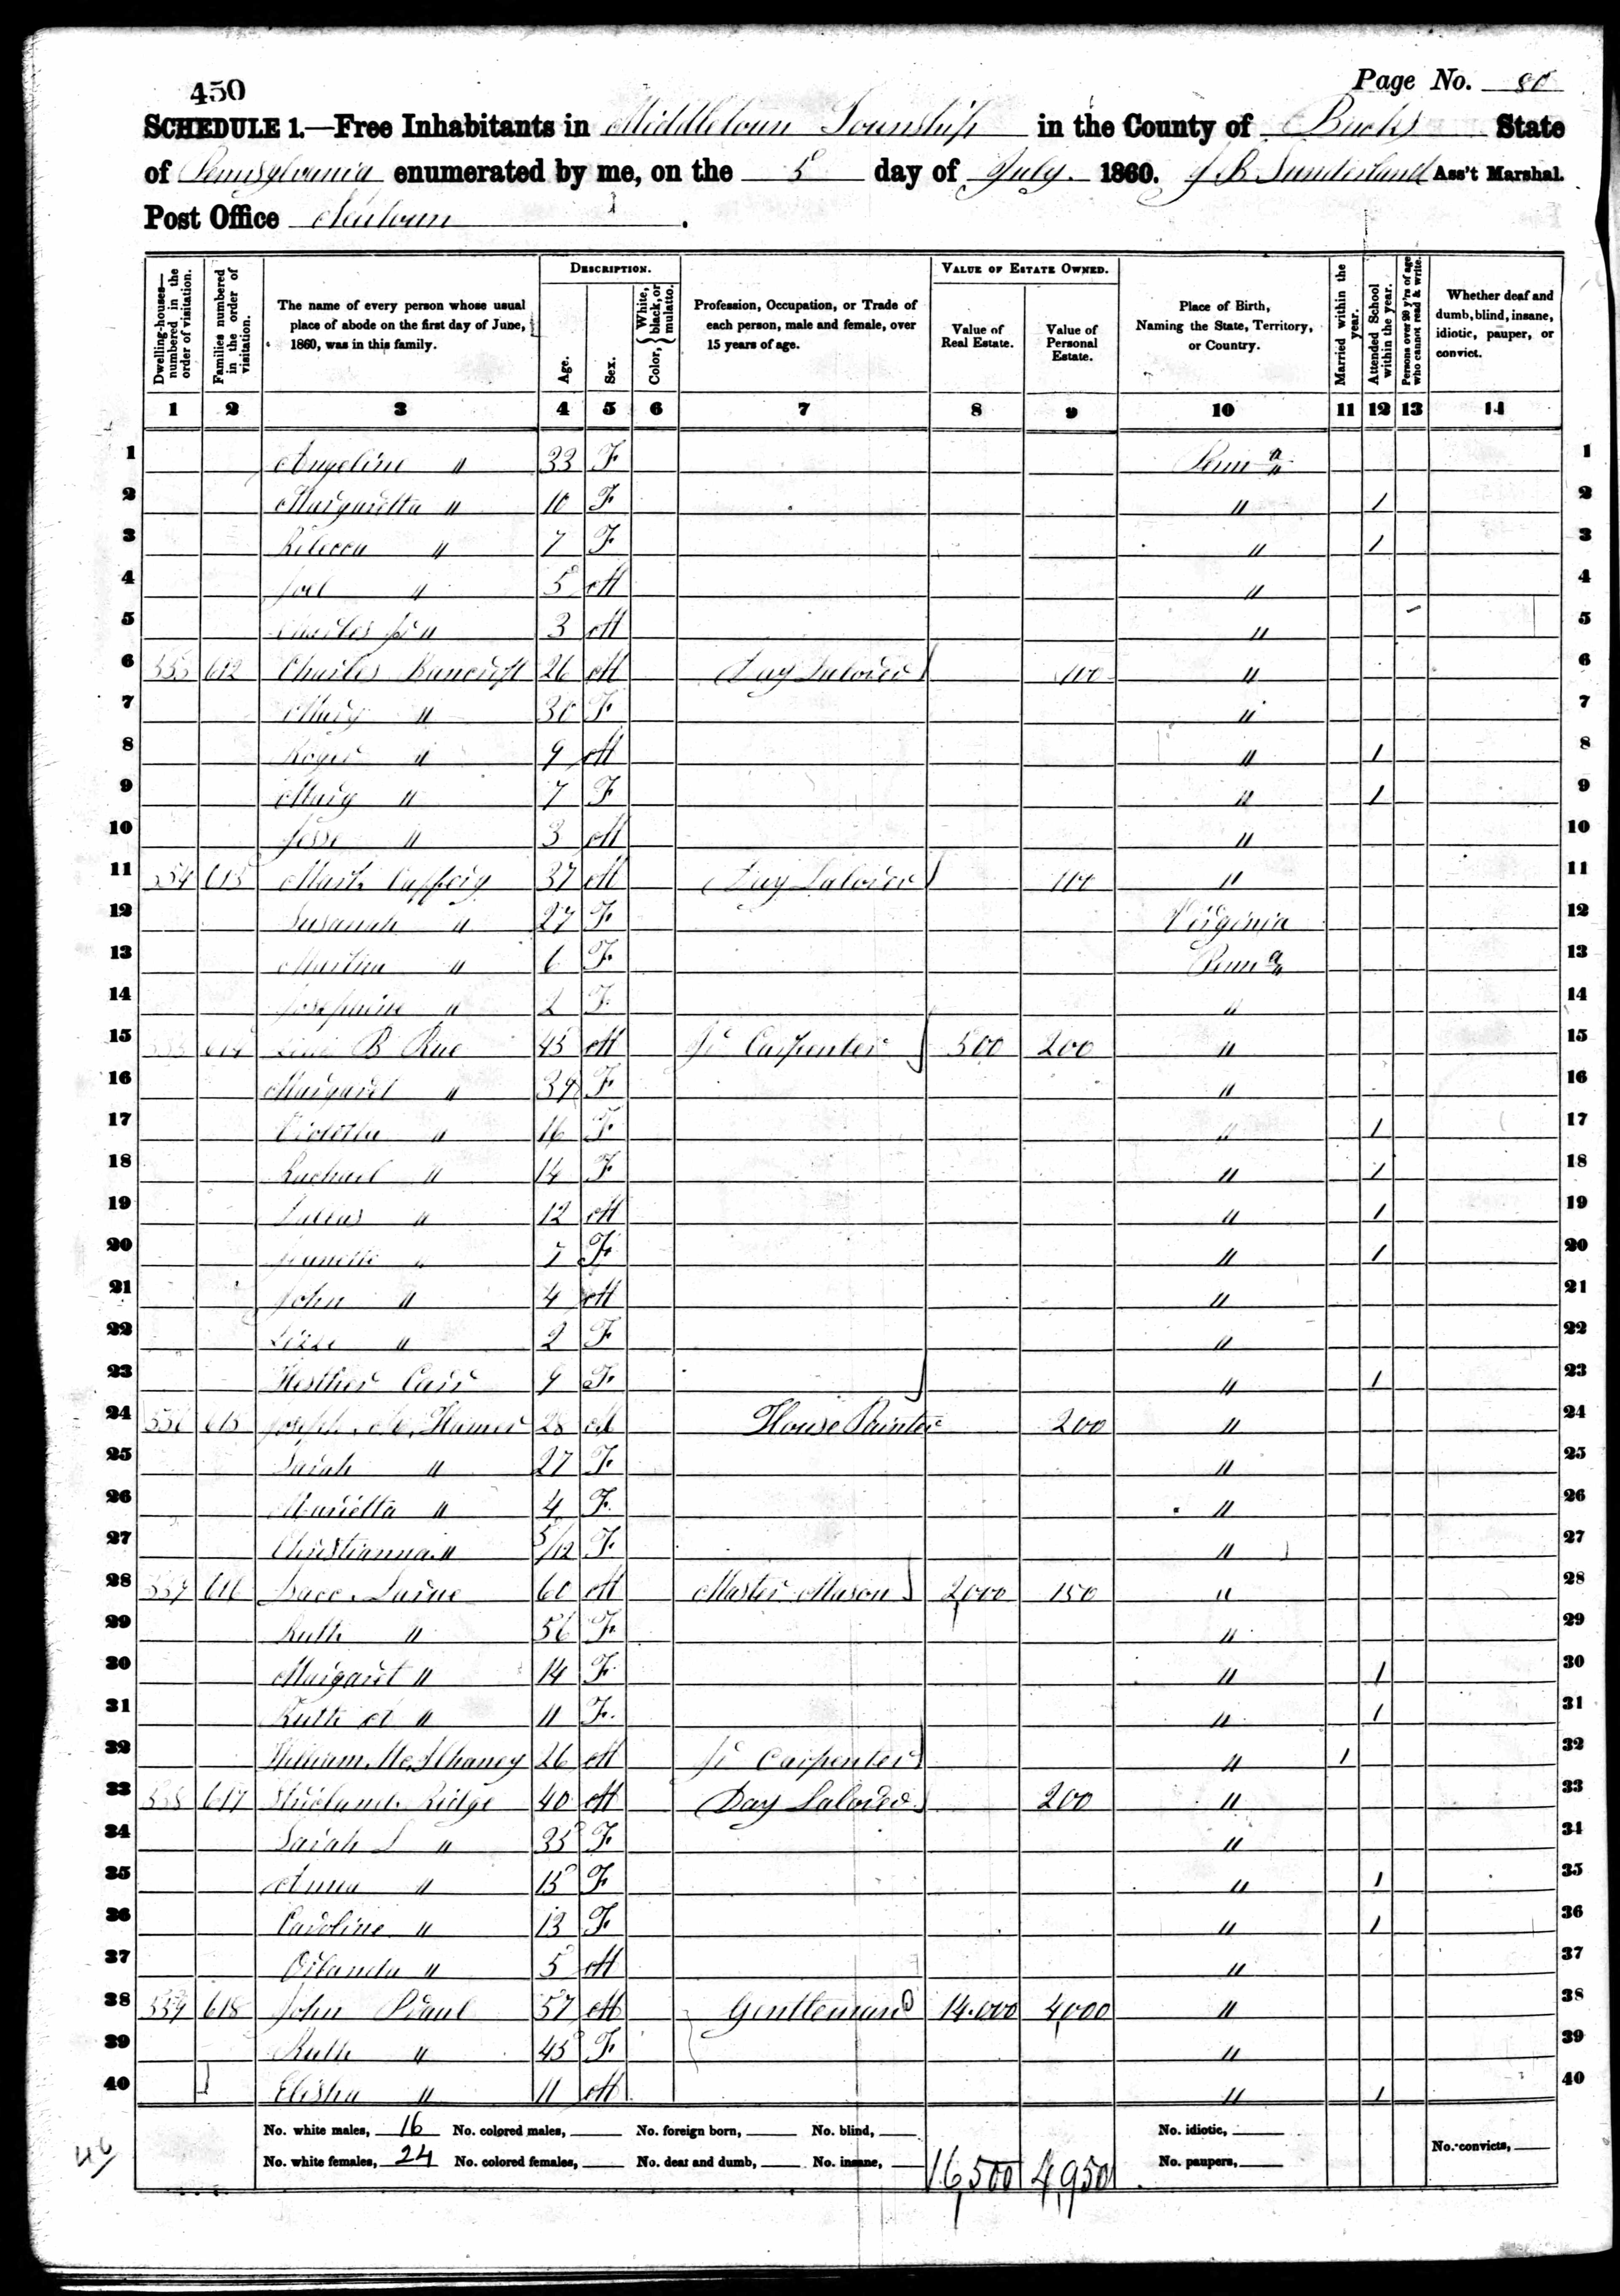 450
Page No. 80
SCHEDULE 1.—Free Inhabitants in Middletown Township in the County of Bucks State
of Pennsylvania enumerated by me, on the 5 day of July. 1860. J B Sunderland Ass't Marshal.
Post Office Newtown.
Dwelling-houses—numbered in the order of visitation.
Families numbered in the order of visitation.
The name of every person whose usual place of abode on the first day of June, 1860, was in this family.
DESCRIPTION.
Age.
Sex.
Color, { White, black, or mulatto.
Profession, Occupation, or Trade of each person, male and female, over 15 years of age.
VALUE OF ESTATE OWNED.
Value of Real Estate.
Value of Personal Estate.
Place of Birth, Naming the State, Territory, or Country.
Married within the year.
Attended School within the year.
Persons over 20 y'rs of age who cannot read & write.
Whether deaf and dumb, blind, insane, idiotic, pauper, or convict.
1 2 3 4 5 6 7 8 9 10 11 12 13 14
1 Angeline " 33 F Penn a " 1
2 Margaretta " 10 F " / 2
3 Rebecca " 7 F " / 3
4 Joel " 5 M " 4
5 Charles Jr " 3 M " 5
6 553 612 Charles Bancroft 26 M Day Laborer 100 " 6
7 Mary " 30 F " 7
8 Roger " 9 M " / 8
9 Mary " 7 F " / 9
10 Jesse " 3 M " 10
11 554 613 Mark 37 M Day Laborer 100 " 11
12 Susanah " 27 F Virginia 12
13 Martha " 6 F Penn a " 13
14 Josephine " 2 F " 14
15 555 614 B Rue 45 M Jr Carpenter 500 200 " 15
16 Margaret " 39 F " 16
17 " 16 F " / 17
18 Rachael " 14 F " / 18
19 " 12 M " / 19
20 " 7 F " / 20
21 John " 4 M " 21
22 " 2 F " 22
23 Hesther Carr 9 F " / 23
24 556 615 Joseph Hamer 28 M House Painter 200 " 24
25 Sarah " 27 F " 25
26 Marietta " 4 F " 26
27 Christianna " 5/12 F " 27
28 557 616 Isacc 60 M Master Mason 2,000 150 " 28
29 Ruth " 56 F " 29
30 Margaret " 14 F " / 30
31 Ruth A " 11 F " / 31
32 William McIlhaney 26 M Jr Carpenter " / 32
33 558 617 Ridge 40 M Day Laborer 200 " 33
34 Sarah L " 35 F " 34
35 Anna " 15 F " / 35
36 Caroline " 13 F " / 36
37 Orlando " 5 M " 37
38 559 618 John Praul 57 M Gentleman 14.000 4,000 " 38
39 Ruth " 45 F " 39
40 Elisha " 11 M " / 40
No. white males, 16 No. colored males, No. foreign born, No. blind, No. idiotic,
No. white females, 24 No. colored females, No. deaf and dumb, No. insane, 16,500 4,950 No. paupers, No. convicts,